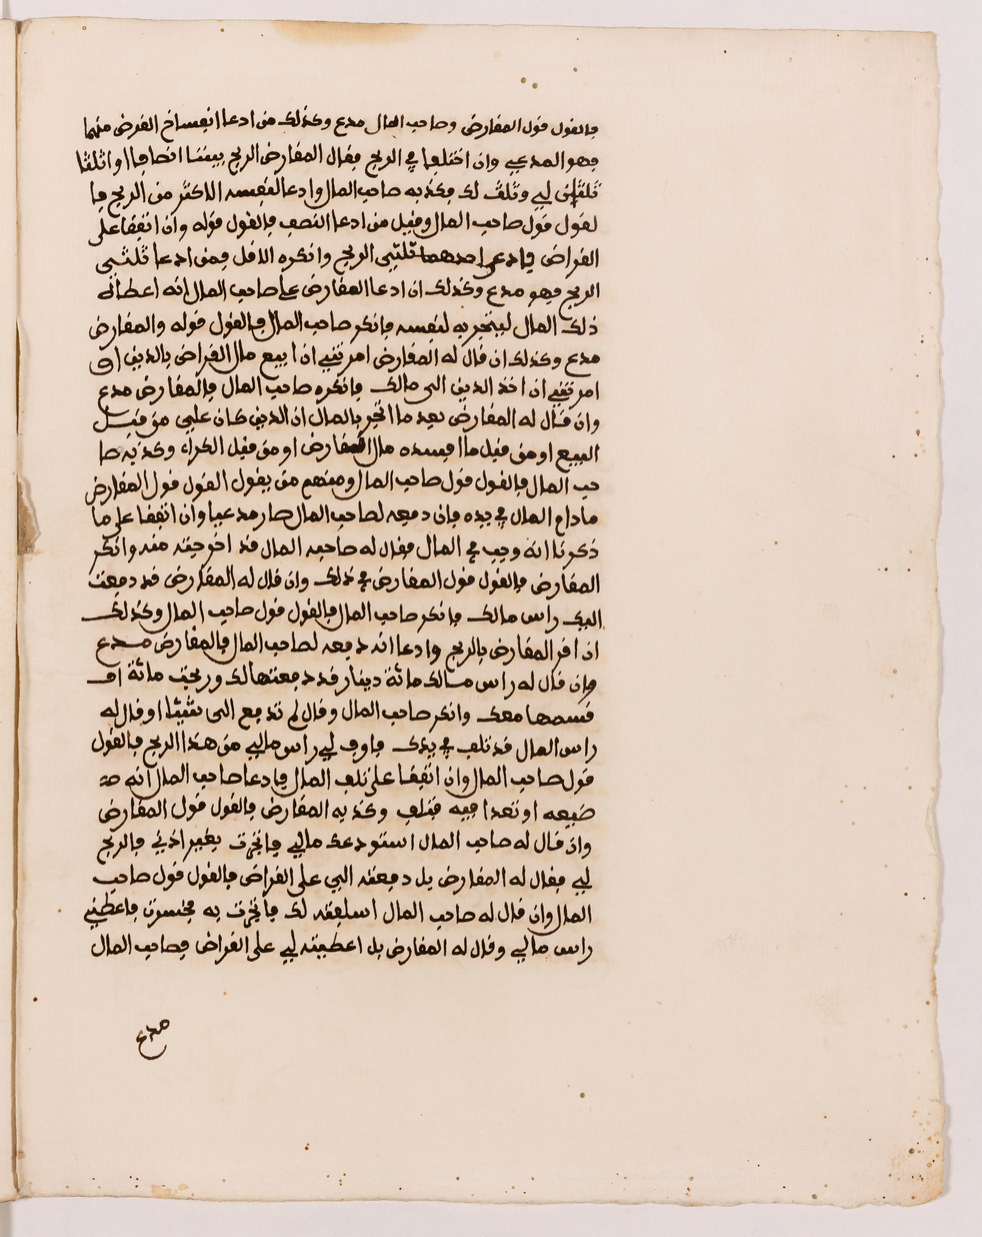 فالقول قول المقارض وصاحب المال مدع وكذلك من ادعا انفساخ القرض منهما
فهو المدعي وان اختلفا في الربح فقال المقارض الربح بيننا انصافا او اثلاثا
ثلثان لي وثلث لك فكذبه صاحب المال وادعا لنفسه الاكثر من الربح فا
لقول قول صاحب المال وقيل من ادعا النصف فالقول قوله وان اتفقا على
القراض فادعى احدهما ثلثي الربح وانكره الاقل فمن ادعا ثلثي
الربح فهو مدع وكذلك ان ادعا المقارض على صاحب المال انه اعطاه
ذلك المال ليتجر به لنفسه فانكر صاحب المال فالقول قوله والمقارض
مدع وكذلك ان قال له المقارض امرتني ان ابيع مال القراض بالدين او
امرتني ان اخذ الدين الى مالك فانكره صاحب المال فالمقارض مدع
وان قال له المقارض بعد ما اتجر بالمال ان الدين كان علي من قبل
البيع او من قبل ما افسده مال المقارض او من قبل الكراء وكذبه صا
حب المال فالقول قول صاحب المال ومنهم من يقول القول قول المقارض
مادام المال في يده فان دفعه لصاحب المال صار مدعيا وان اتفقا على ما
ذكرنا انه وجب في المال فقال له صاحب المال قد اخرجته منه وانكر
المقارض فالقول قول المقارض في ذلك وان قال له المقارض قد دفعت
اليك راس مالك فانكر صاحب المال فالقول قول صاحب المال وكذلك
ان اقر المقارض بالربح وادعا انه دفعه لصاحب المال فالمقارض مدع
وان قال له راس مالك مائة دينار قد دفعتها لك وربحت مائة او
قسمها معك وانكر صاحب المال وقال لم تدفع الي شيئا او قال له
راس المال قد تلف في يدك فاوف لي راس مالي من هذا الربح فالقول
قول صاحب المال وان اتفقا على تلف المال فادعا صاحب المال انه
ضيعه او تعدا فيه فتلف وكذبه المقارض فالقول قول المقارض
وان قال له صاحب المال استودعك مالي فاتجرت بغير اذني فالربح
لي فقال له المقارض بل دفعته الي على القراض فالقول قول صاحب
المال وان قال له صاحب المال اسلفته لك فاتجرت به فخسرت فاعطني
راس مالي وقال له المقارض بل اعطيته لي على القراض فصاحب المال
مدع